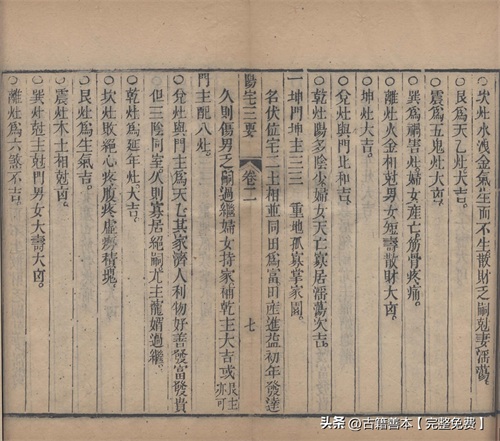 ○坎灶水洩金氣生而不生散財乏嗣尅妻滛蕩。
○艮灶爲天乙灶大吉。
○震爲五鬼灶大凶。
○巽爲禍害灶婦女產亡筋骨疼痛。
○離灶火金相尅男女短壽散財大凶。
○坤灶大吉。
○兌灶與門比和吉。
○乾灶陽多陰少婦女夭亡寡居滛蕩次吉。
一坤門坤主三三 重地孤寡掌家園。
名伏位宅二土相並同田爲富田產進益初年發達
陽宅三要 卷二 七
久則傷男乏嗣過繼婦女持家補乾主大吉或艮主亦可
門主配八灶。
○兌灶與門主爲天乙其家濟人利物好善發富發貴
但三陰同室久則寡居絕嗣尤主寵婿過繼。
○乾灶爲延年灶大吉。
○坎灶敗絕心疼腹疼虛癆積塊。
○艮灶爲生氣吉。
○震灶木土相尅凶。
○巽灶尅主尅門男女大壽大凶。
○離灶爲六煞不吉。
头条 @古籍善本【完整免费】